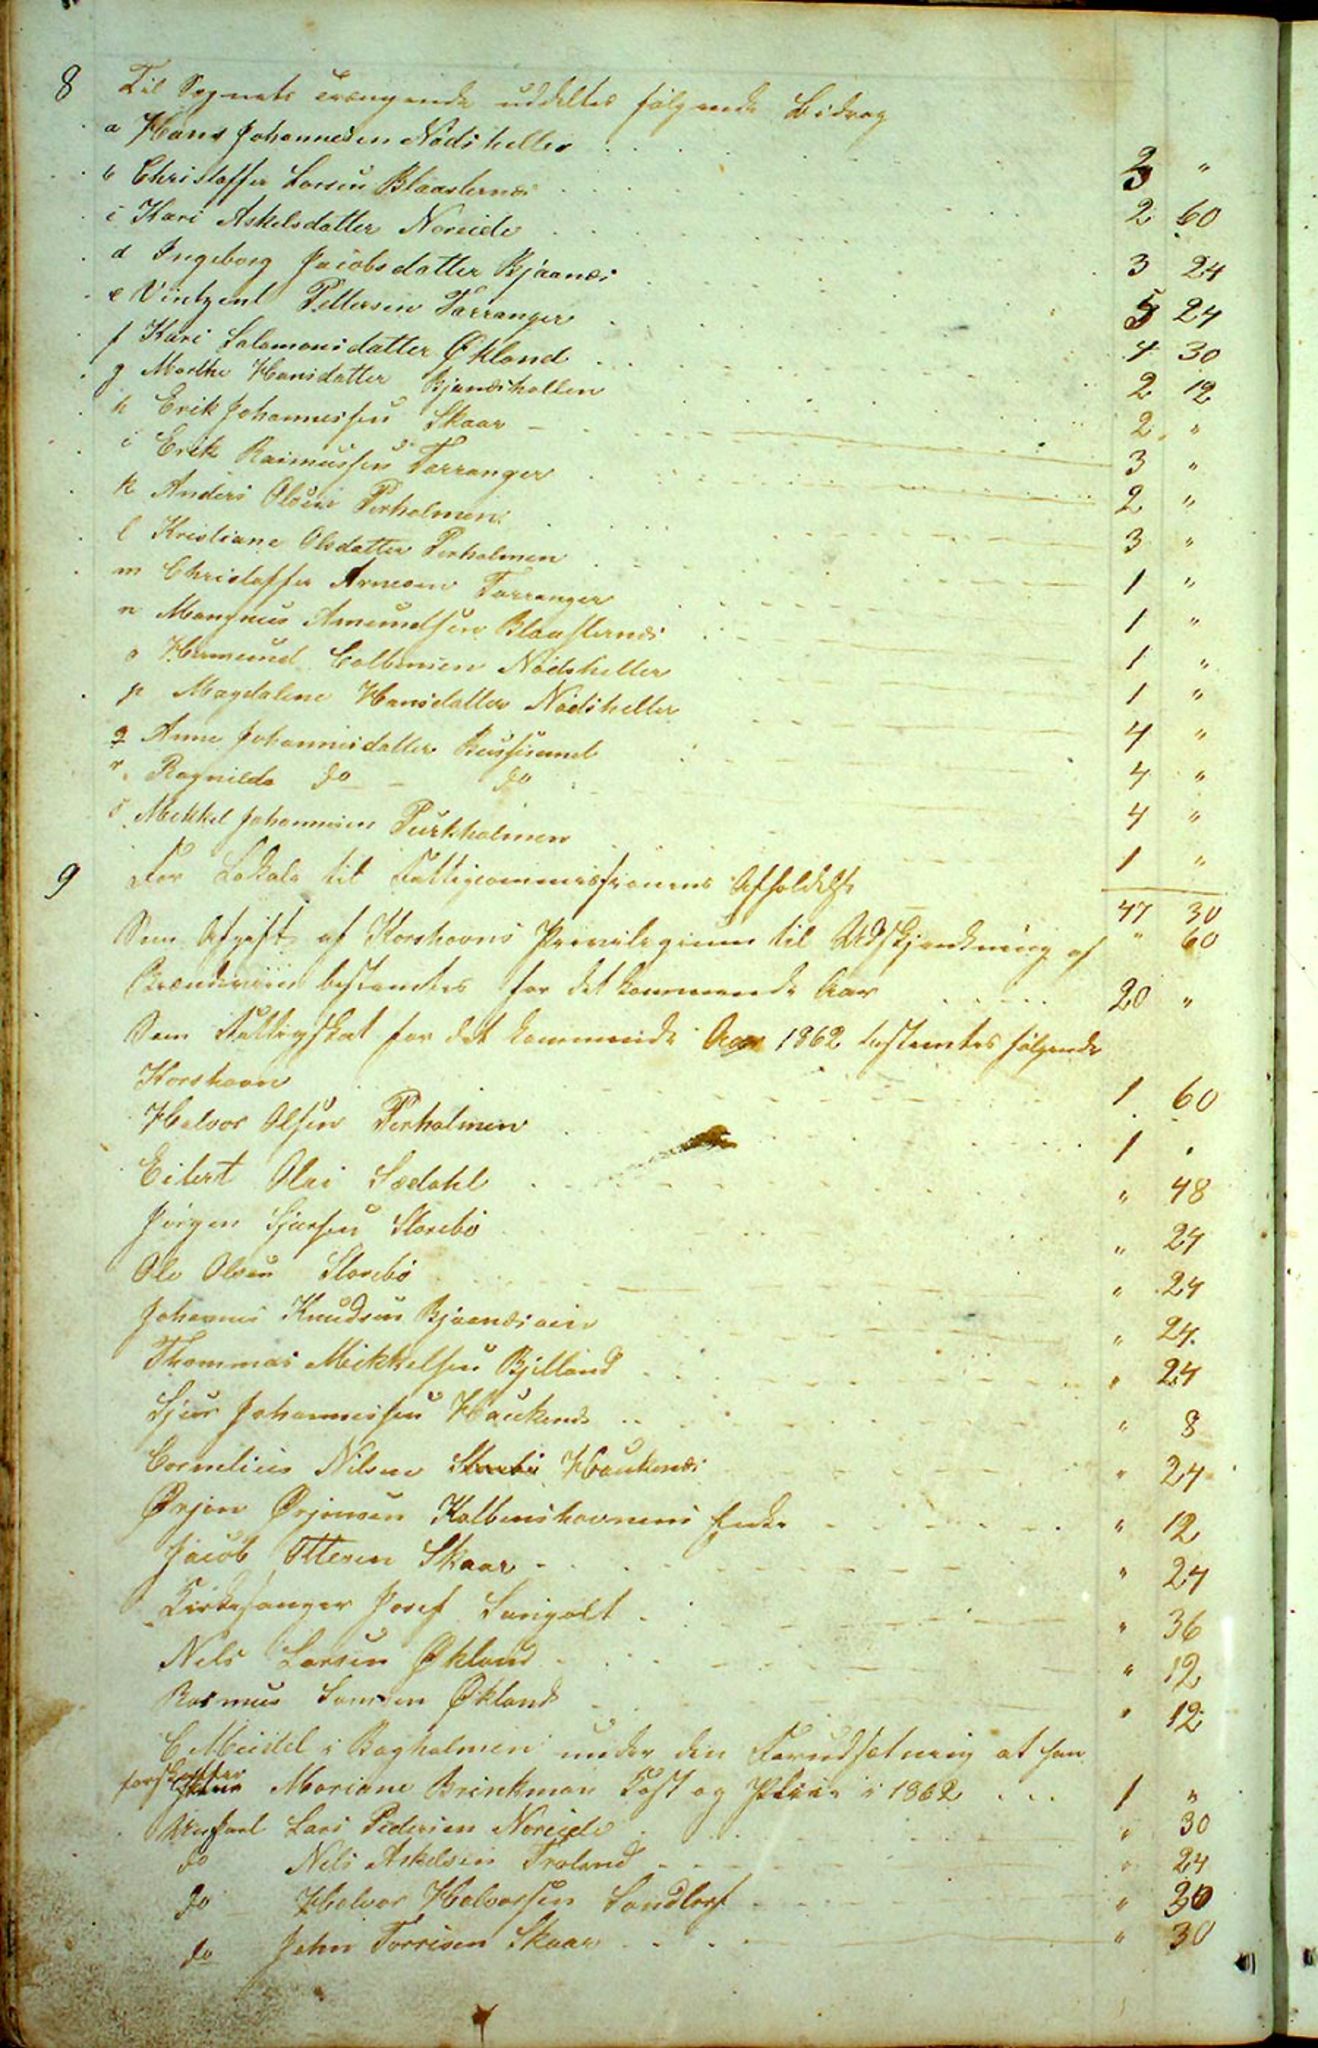 8 Til Sognets trængende uddeltes følgende Bidrag
a Hans Johannesen Nødsheller . . . 3 "
b Christoffer Larsen Blaasternæs . . . 2 60
c Kari Askelsdatter Noreide . . . 3 24
d Ingeborg Jacobsdatter Bjaanæs . . . 5 24
e Vintzent Pettersen Tarranger . . . 4 30
f Kari Salamonsdatter Økland . . . 2 12
g Marthe Hansdatter Bjanæshollen 2 "
h Erik Johannessen Skaar 3 "
i Erik Rasmussen Tarranger 2 "
k Anders Olsen Perholmen 3 "
l Kristiane Olsdatter Perholmen 1 "
m Christoffer Arnesen Tarranger 1 "
n Mangnus Amundsen Blaasternæs 1 "
o Hermund Colbensen Nødsheller 1 "
p Magdalene Hansdatter Nødsheller 4 "
q Anne Johannesdatter Bussesund 4 "
r Ragnilde do - do 4 "
s Mikkel Johannesen Purkholmen 1 "
47 30
9 For Lokale til Fattigcommissionens Afholdelse " 60
Som Afgift af Korshavns Privilegium til Udskjænkning af
Brændeviin bestemtes for det kommende Aar 20 "
Som Fattigskat for det kommende Aar 1862 bestemtes følgende
Korshavn 1 60
Halvor Olsen Perholmen 1 .
Eilert Olai Sædahl " 48
Jörgen Sjursen Storebö " 24
Ole Olsen Storebö " 24
Johannes Knudsen Bjaanæsöen " 24
Thommas Mikkelsen Bjelland " 24
Sjur Johannessen Haukenæs " 8
Cornelius Nilsen Haukenæs " 24
Ørjan Ørjansen Kolbenshavnens Enke " 12
Jacob Ottesen Skaar " 24
Kirkesanger Josef Sangolt " 36
Nils Larsen Økland " 12
Rasmus Larsen Økland " 12
C Meidel i Bagholmen under den Forudsætning at han
forskaffer Mariane Brinkman Kost og Pleie i 1862 . . . 1 "
Lars Pedersen Noreide " 30
do Nils Askelsen Troland " 24
do Halvor Halvorsen Sandtorf " 30
do John Torrisen Skaar " 30